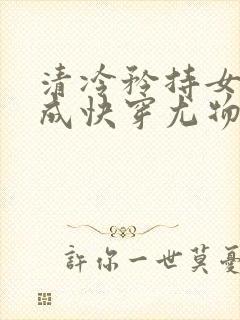 清冷矜持女
成快穿尤物
許你一世莫憂